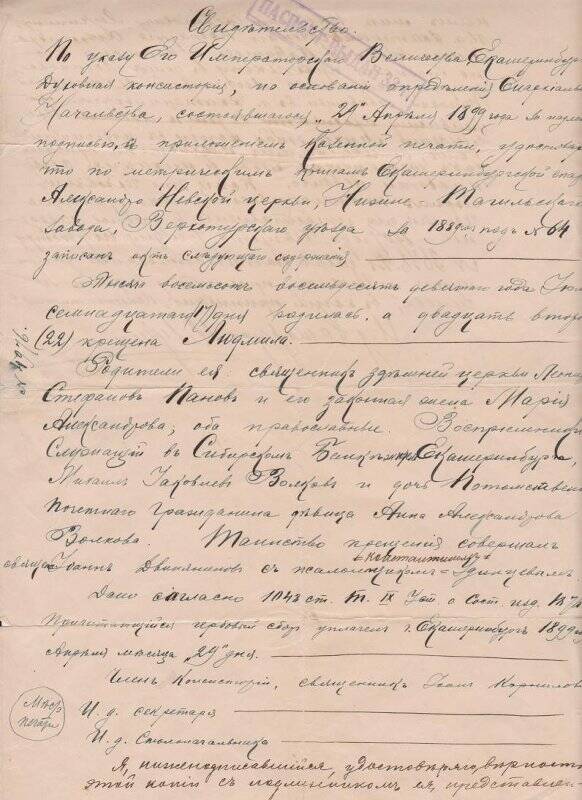 Свидѣтельство.
По указу Его Императорскаго Величества, Екатеринбур
Духовная консисторія, на основаніи опредѣленія Епархіаль
Начальства, состоявшагося „29" Апрѣля 1899 года за надле
подписью, и приложеніемъ казенной печати, удостовѣр
что по метрическимъ книгамъ Екатеринбургской епар
Александро Невской церкви, Нижне-Тагильскаго
завода, Верхотурскаго уѣзда за 1889 годъ подъ № 64
записанъ актъ слѣдующаго содержанія
Тысяча восемьсотъ восемьдесятъ девятаго года Іюл
семнадцатаго (17) дня родилась, а двадцать второ
(22) крещена Людмила.
Родители ея: священникъ здѣшней церкви
Стефановъ Пановъ и его законная жена Марія
Александрова, оба православные. Воспріемники
Служащій въ Сибирскомъ Банкѣ Екатеринбурга,
Михаилъ Яковлевъ Волковъ и дочь Потомствен
почетнаго гражданина дѣвица Анна Александрова
Волкова. Таинство крещенія совершалъ
свящ. Іоаннъ Двиняниновъ съ псаломщикомъ
Дано согласно 1043 ст. Т. IX Уст. о Сост. изд. 1876
Причитающійся гербовый сборъ уплаченъ г. Екатеринбургъ 1899 год
Апрѣля мѣсяца „29" дня.
Членъ Консисторіи, священникъ Іоаннъ Корнилов
Мѣсто
печати
И. д. секретаря
И. д. Столоначальника
Я, нижеподписавшійся, удостовѣряю вѣрность
этой копіи съ подлинникомъ ея, представлен